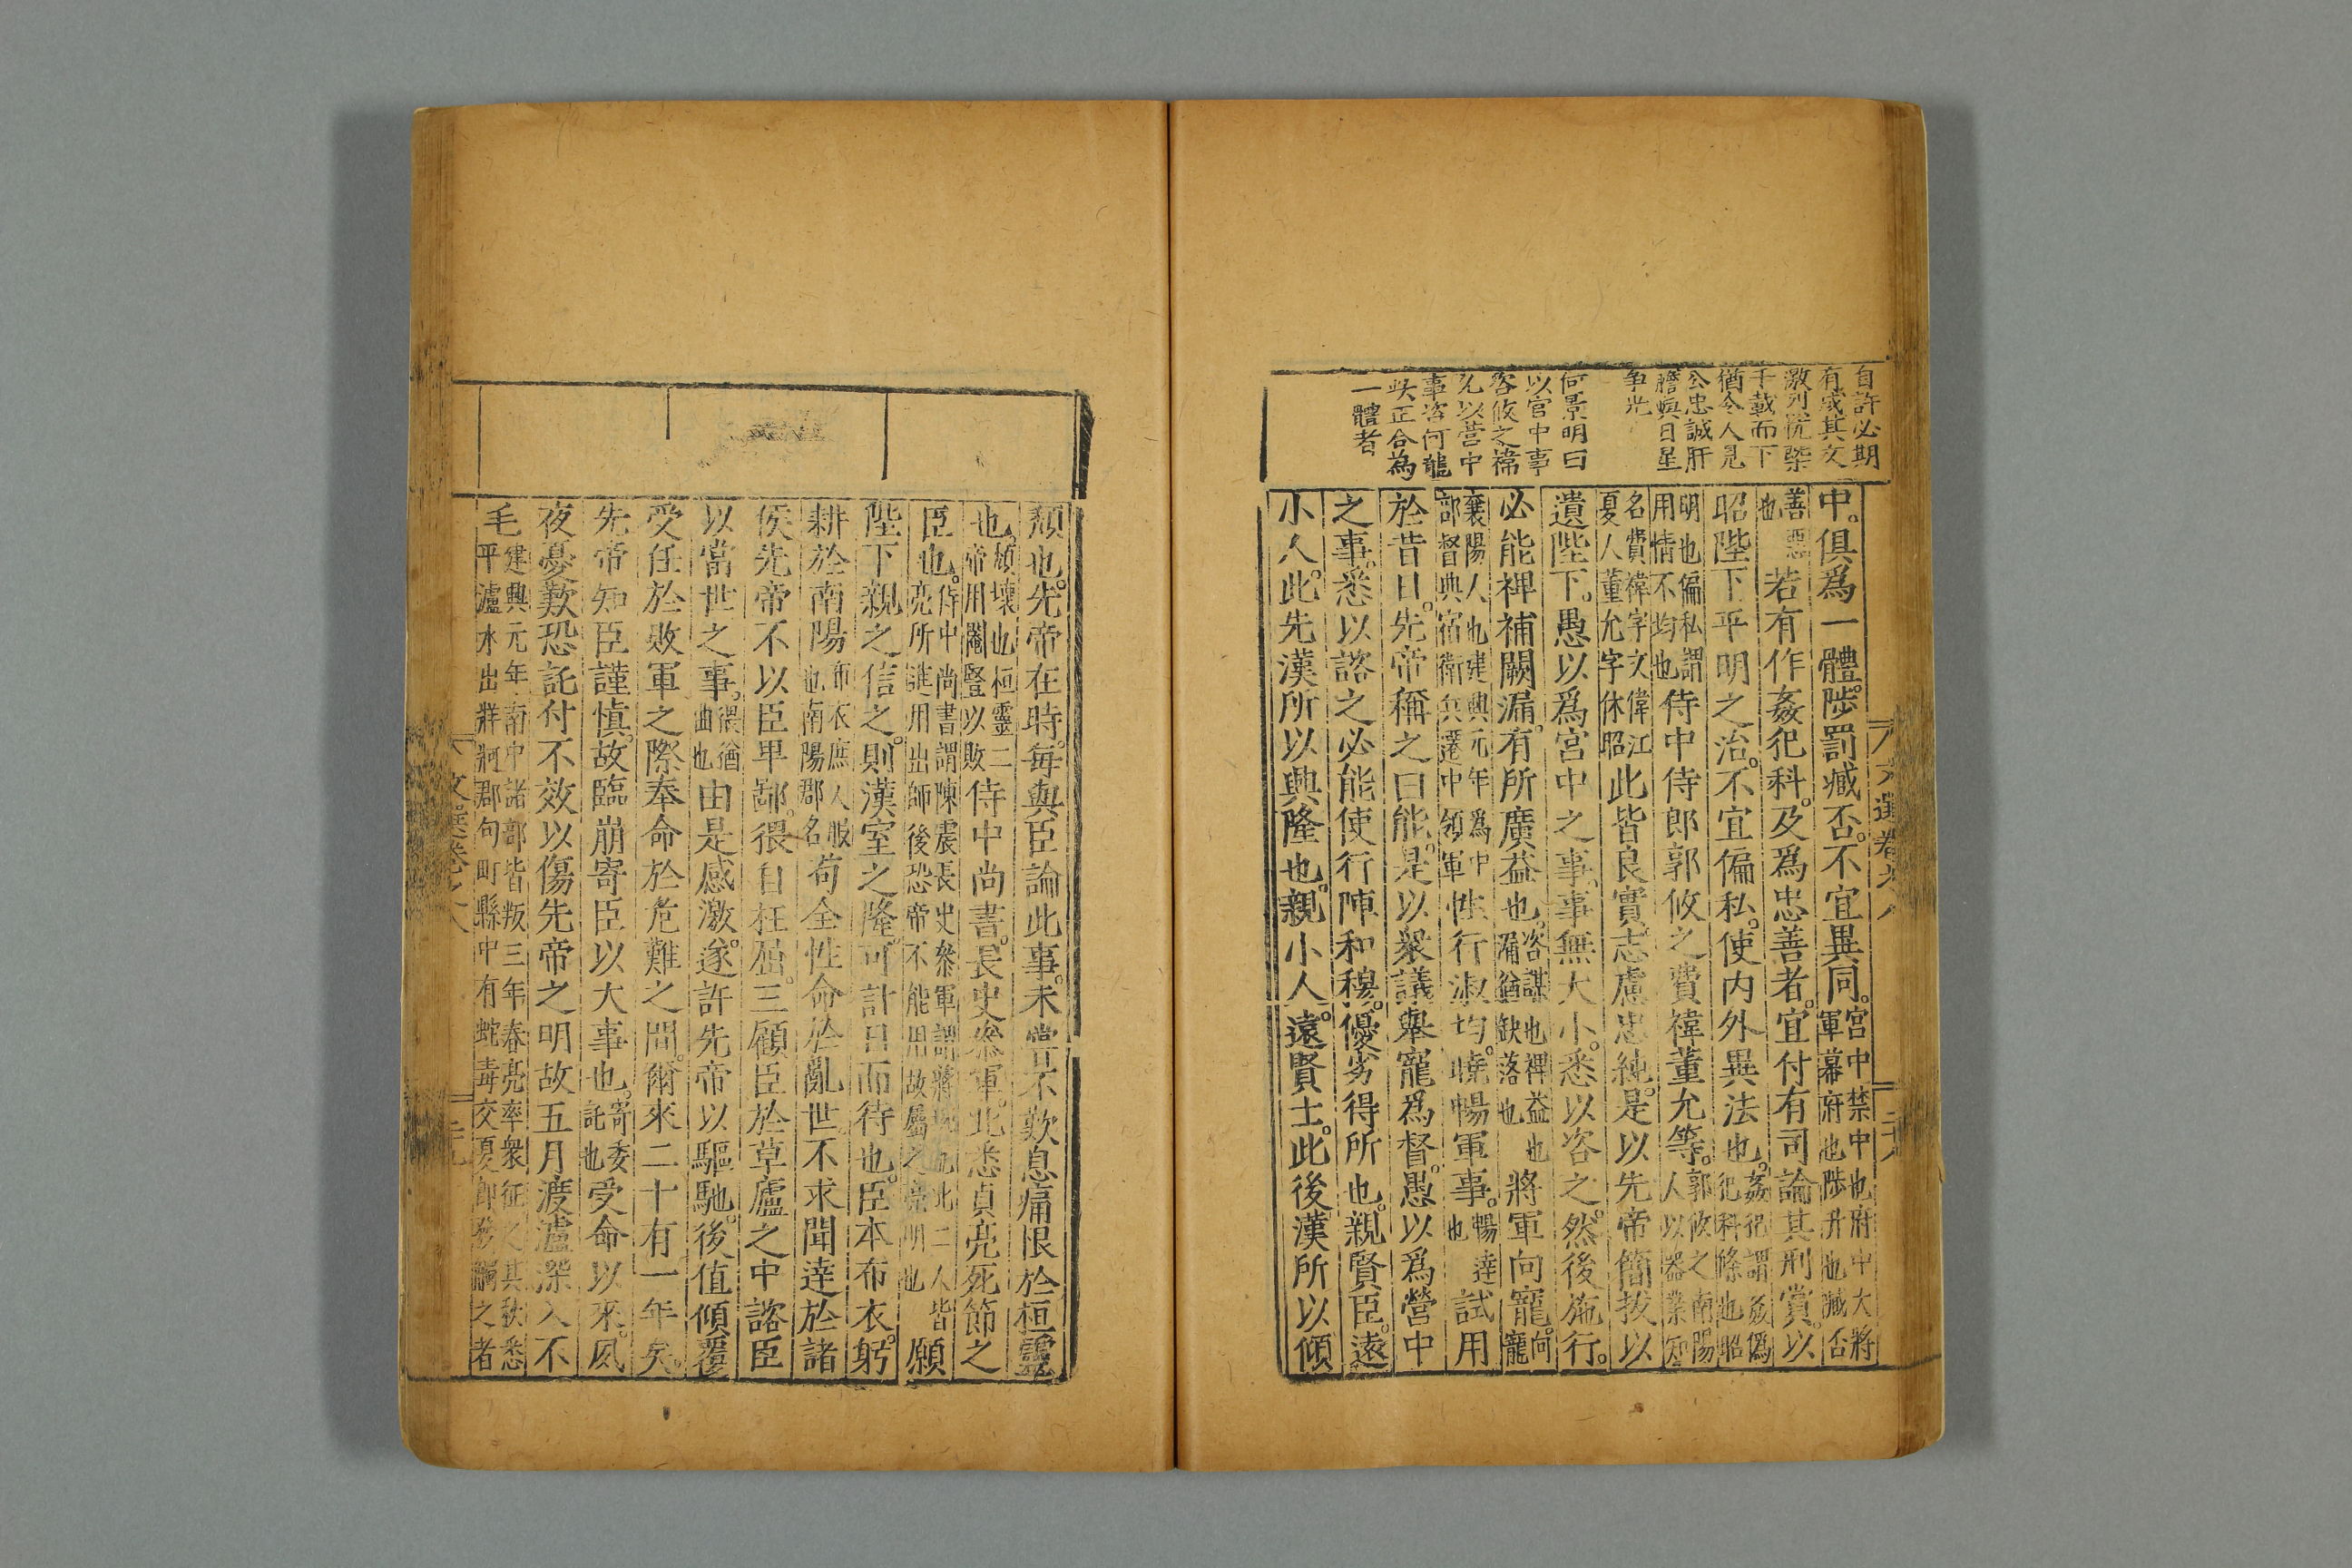 自許必期
有成其文
激烈慌槩
千載而下
猶令人見
公忠誠肝
膽與日星
争光
何景明曰
以官中事
咨攸之禕
允以營中
事咨向寵
此正合為
一體者
中。俱爲一體。陟罰臧否。不宜異同。宮中禁中也府中大將
軍幕府也陟升也臧否
善惡
也若有作姦犯科。及爲忠善者。宜付有司論其刑賞。以
昭陛下平明之治。不宜偏私。使内外異法也。姦犯謂姦僞
犯科條也昭
明也偏私謂
用情不均也侍中侍郎郭攸之費禕董允等。郭攸之南陽
人以器業知
名費禕字文偉江
夏人董允字休昭此皆良實。志慮忠純。是以先帝簡拔以
遺陛下。愚以爲宮中之事。事無大小。悉以咨之。然後施行。
必能裨補闕漏。有所廣益也。咨謀也裨益也
漏猶缺落也將軍向寵。向
寵
襄陽人也建興元年爲中
部督典宿衛兵遷中領軍性行淑均。曉暢軍事。暢達
也試用
於昔日。先帝稱之曰能。是以衆議舉寵爲督。愚以爲營中
之事。悉以諮之。必能使行陣和穆。優劣得所也。親賢臣。遠
小人。此先漢所以興隆也。親小人。遠賢士。此後漢所以傾
文選卷之八
頹也。先帝在時。每與臣論此事。未嘗不歎息痛恨於桓靈
也。頹壞也桓靈二
帝用閹豎以敗侍中尚書。長史參軍。此悉貞亮死節之
臣也。侍中尚書謂陳震長史參軍謂蔣琬也此二人皆
亮所進用出師後恐帝不能用故屬之亮明也願
陛下親之信之。則漢室之隆。可計日而待也。臣本布衣。躬
耕於南陽布衣庶人服
也南陽郡名苟全性命於亂世。不求聞達於諸
侯。先帝不以臣卑鄙。猥自枉屈。三顧臣於草廬之中。諮臣
以當世之事。猥猶
曲也由是感激。遂許先帝以驅馳。後值傾覆
受任於敗軍之際奉命於危難之間。爾來二十有一年矣。
先帝知臣謹愼。故臨崩寄臣以大事也。寄委
託也受命以來。夙
夜憂歎恐託付不效以傷先帝之明故五月渡瀘深入不
毛建興元年南中諸郡皆叛三年春亮率衆征之其秋悉
平瀘水出牂牁郡句町縣中有蛇毒交夏